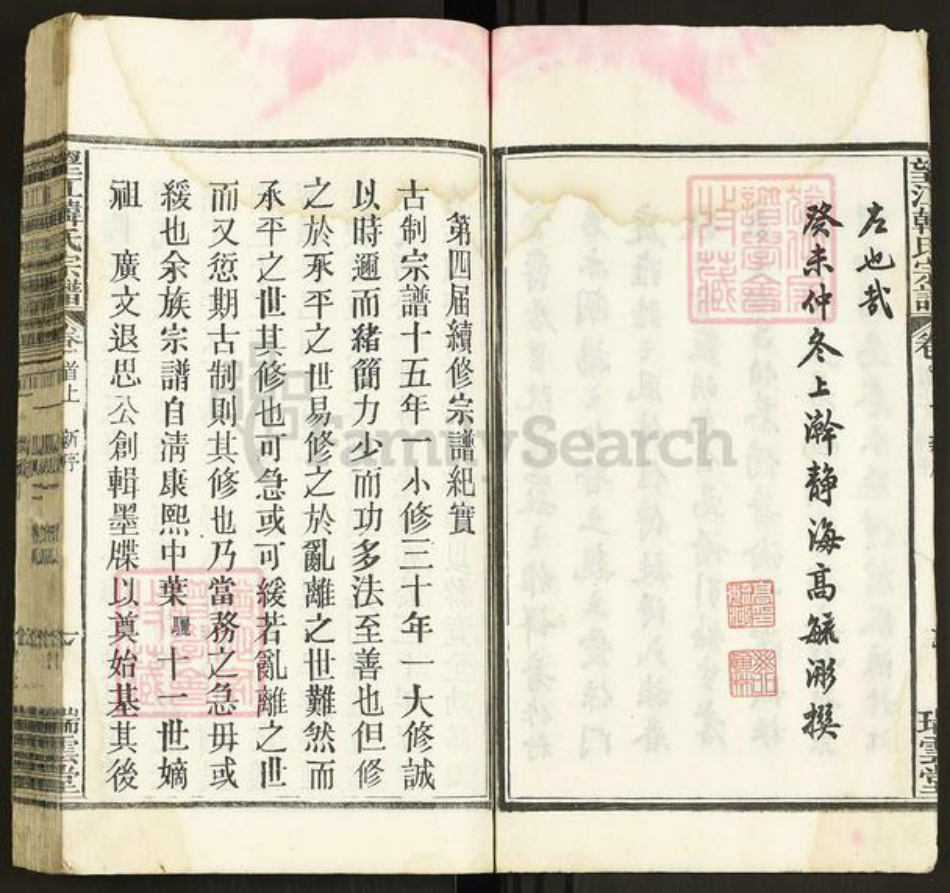 左也哉
癸未仲冬上澣静海高毓浵撰
望江韓氏宗譜
第四届續修宗譜紀實
古制宗譜十五年一小修三十年一大修誠
以時邇而緒簡力少而功多法至善也但修
之於承平之世易修之於亂離之世難然而
承平之世其修也可急或可緩若亂離之世
而又愆期古制則其修也乃當務之急毋或
緩也余族宗譜自淸康熙中葉 驪 十一世嫡
祖 廣文退思公創輯墨牒以奠始基其後
望江韓氏宗譜
卷 首上 新序
瑞雲堂
FamilySearch